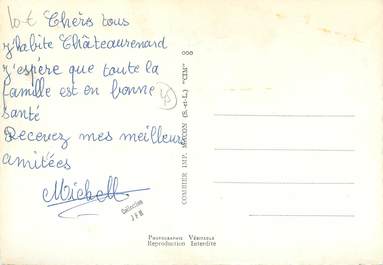 lot
Chèrs tous
j'habite Châteaurenard
j'espère que toute la
famille est en bonne
santé
Recevez mes meilleurs
amitées
Michell
COMBIER IMP. MACON (S.-et-L.) "CIM"
Collection
J F M
Photographie Véritable
Reproduction Interdite